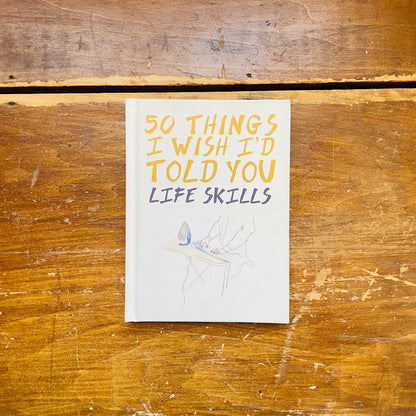 50 THINGS
I WISH I'D
TOLD YOU
LIFE SKILLS